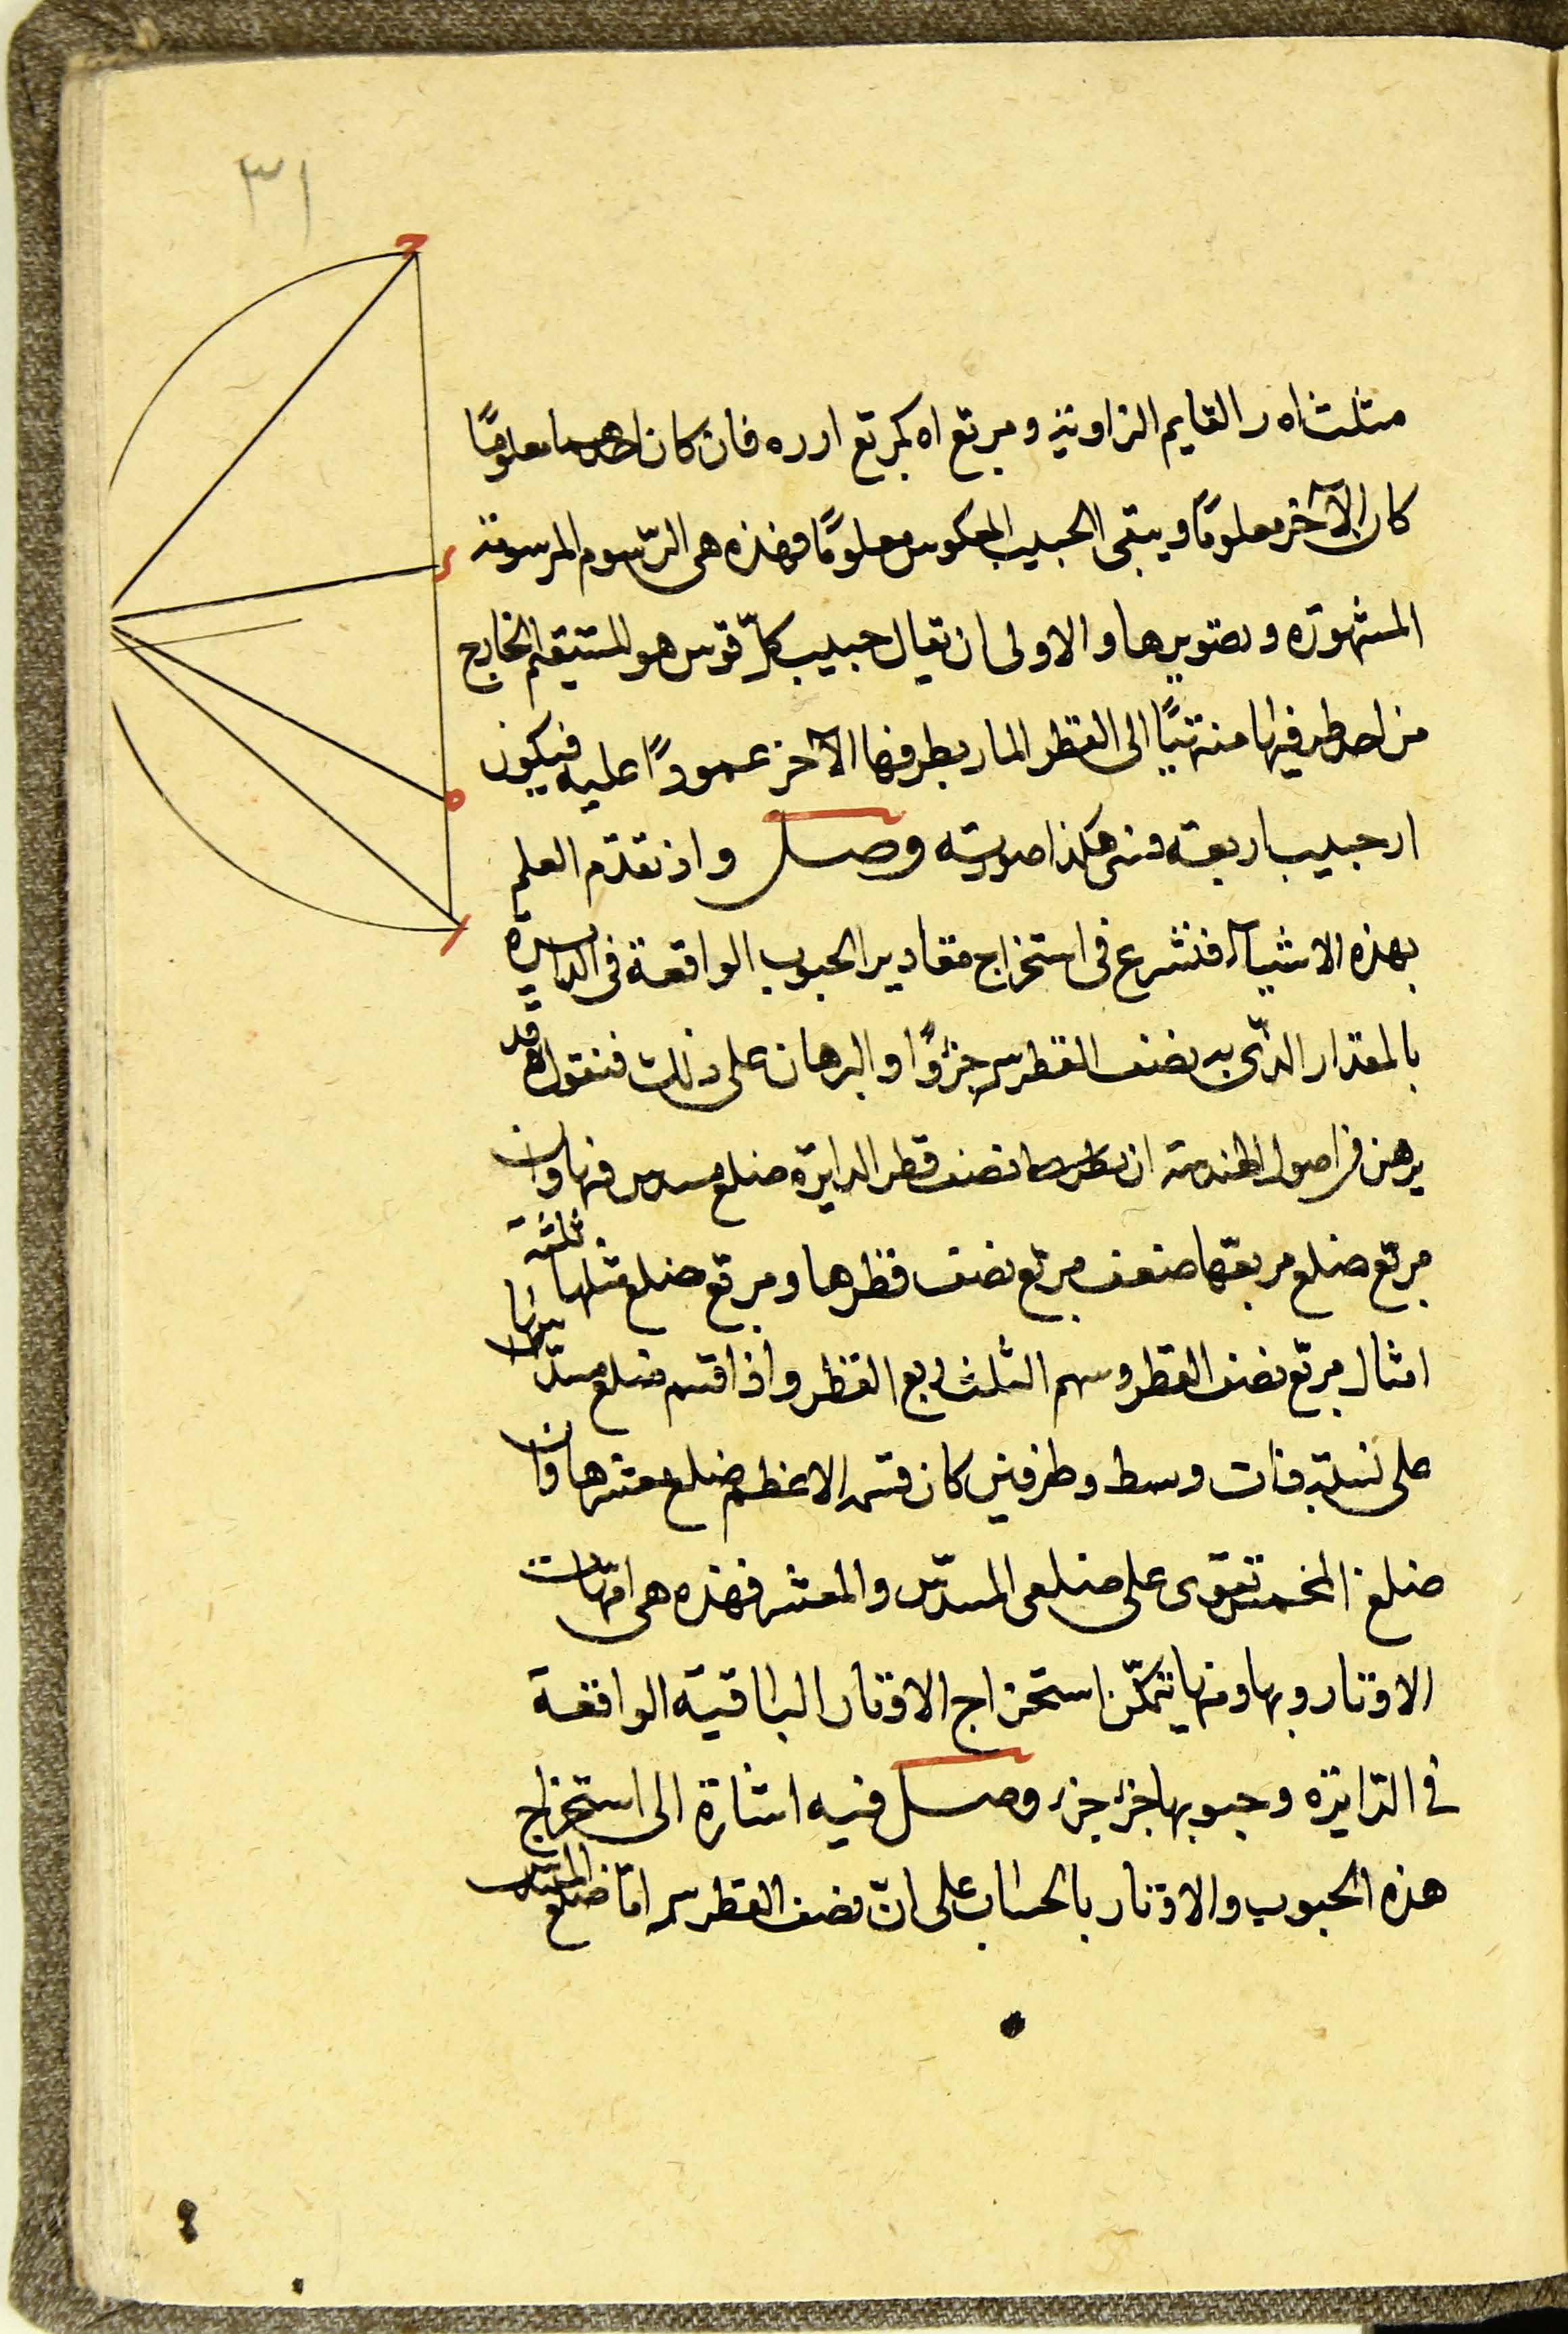 ٣١
مثلث اه ر القايم الزاوية ومربع اه كمربع ار ره فان كان احدهما معلومًا
كان الآخر معلومًا ويبقى الجيب المعكوس معلومًا فهذه هى الرّسوم المرسومة
المشهورة وتصويرها والاولى ان يقال جيب كلّ قوس هو المستقيم الخارج
من احد طرفيها منتهيًا الى القطر المار بطرفها الآخر عمودًا عليه فيكون
ار جيب اربعة هكذا صورته فصل واذ تقدّم العلم
بهذه الاشياء فنشرع فى استخراج مقادير الجيوب الواقعة فى الدايرة
بالمقدار الذى به نصف القطر س جزوًا والبرهان على ذلك فنقول قد
برهن فى اصول الهندسة ان نصف قطر الدايرة ضلع مسدس فيها وان
مربع ضلع مربعها ضعف مربع نصف قطرها ومربع ضلع مثلثها ثلثة
امثال مربع نصف القطر وسهم الثلث ربع القطر واذا قسم ضلع مسدسها
على نسبة ذات وسط وطرفين كان قسمه الاعظم ضلع معشرها وان
ضلع المخمس تقوى على ضلعى المسدّس والمعشر فهذه هى امّهات
الاوتار وبها ومنها يتمكّن استخراج الاوتار الباقية الواقعة
فى الدّايرة وجيوبها جزء جزء فصل فيه اشارة الى استخراج
هذه الجيوب والاوتار بالحساب على انّ نصف القطر س امّا ضلع المسدس
ح
ر
ه
ا